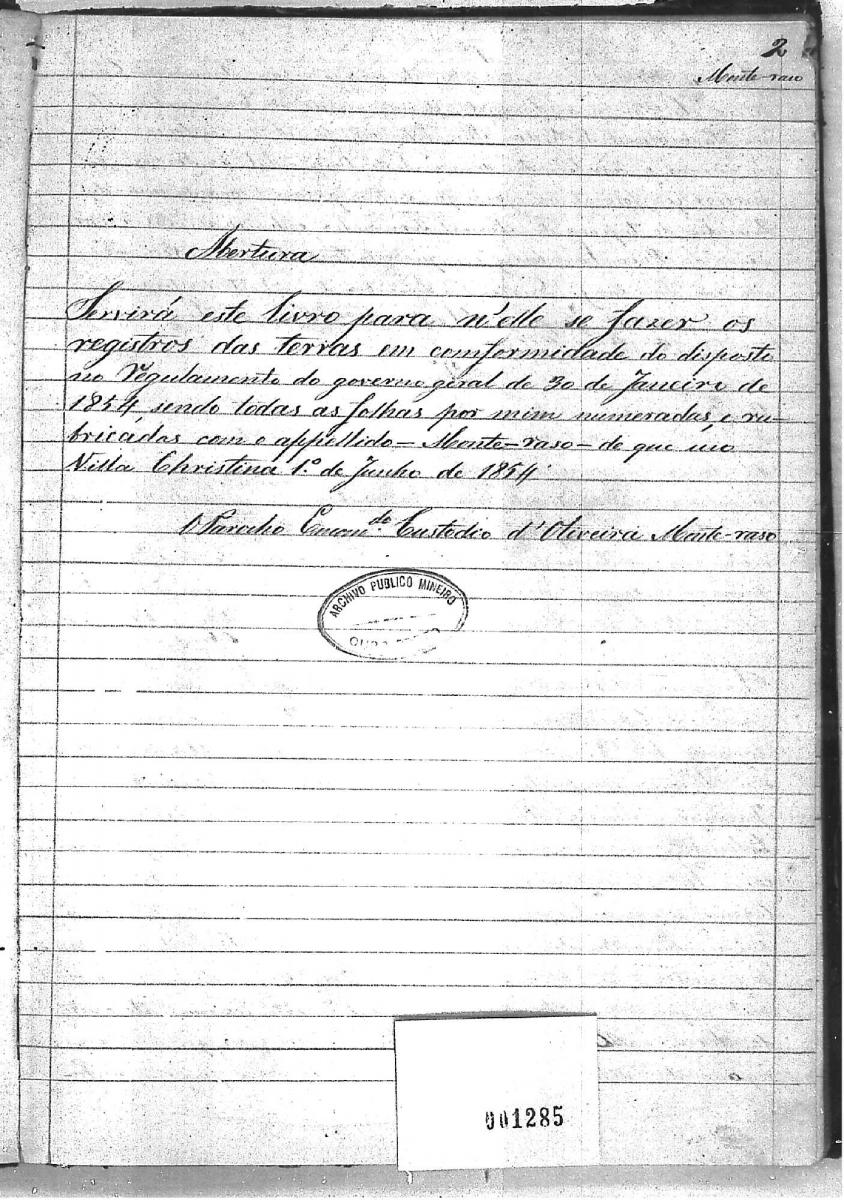 2
Monte-raso
Abertura
Servirá este livro para n'elle se fazer os
registros das terras em comformidade do disposto
no Regulamento do governo geral de 30 de Janeiro de
1854, sendo todas as folhas por mim numeradas, e ru-
bricadas com o appellido - Monte-raso - de que uso
Villa Christina 1.º de Junho de 1854
O Parocho Encom.do Custodio d'Oliveira Monte-raso
ARCHIVO PUBLICO MINEIRO
001285